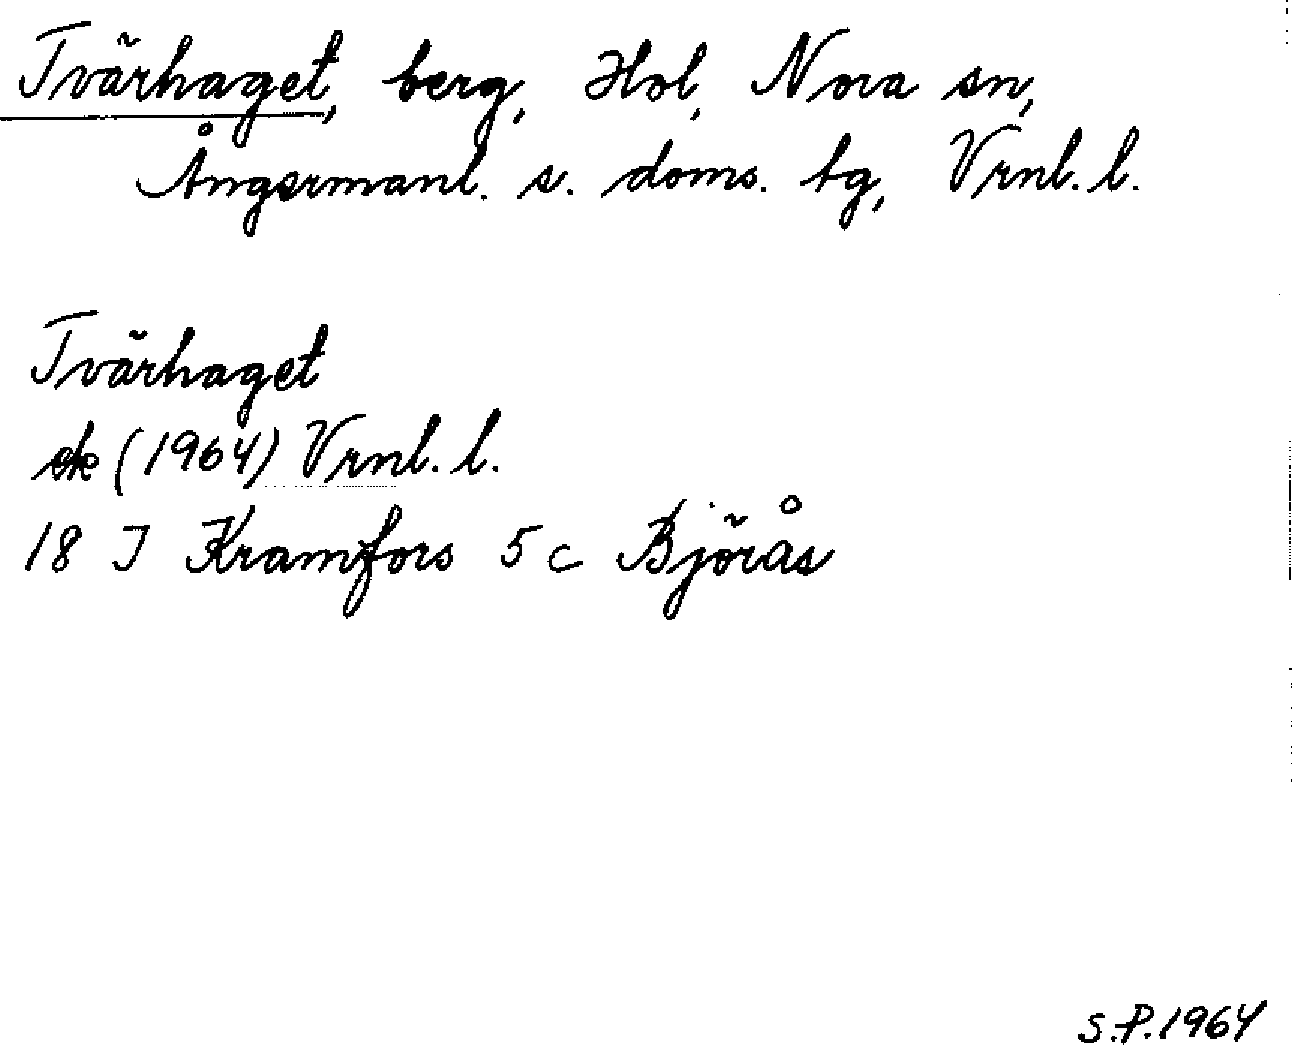 Tvärhaget, berg, Hol, Nora sn,
Ångermanl. s. doms. tg, Vrnl. l.
Tvärhaget
ek (1964) Vrnl. l.
18 I Kramfors 5 c Björås
S.P. 1964